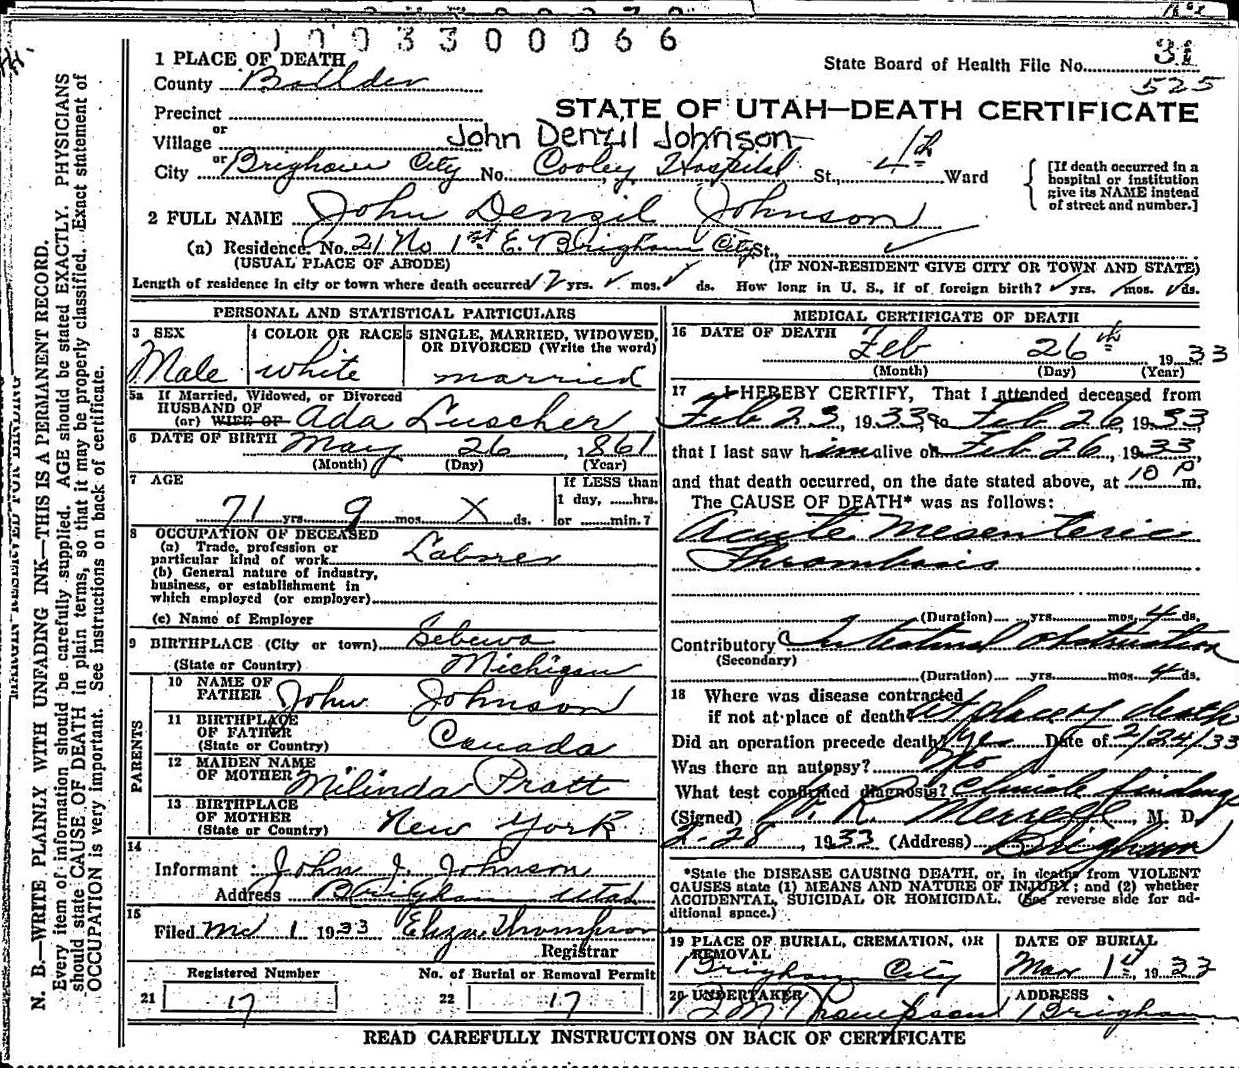 1 0 0 3 3 0 0 0 6 6
1 PLACE OF DEATH
State Board of Health File No. 31
525
County
Precinct
STATE OF UTAH—DEATH CERTIFICATE
or
Village
John Denzil Johnson
or
City Brigham City No. Cooley Hospital St., 4th Ward
[If death occurred in a hospital or institution give its NAME instead of street and number.]
2 FULL NAME John Denzil Johnson
(a) Residence. No. 21 No 1st E. Brigham City St.,
(USUAL PLACE OF ABODE) (IF NON-RESIDENT GIVE CITY OR TOWN AND STATE)
Length of residence in city or town where death occurred yrs. mos. ds. How long in U. S., if of foreign birth? yrs. mos. ds.
PERSONAL AND STATISTICAL PARTICULARS
3 SEX
Male
4 COLOR OR RACE
white
5 SINGLE, MARRIED, WIDOWED, OR DIVORCED (Write the word)
married
5a If Married, Widowed, or Divorced
HUSBAND OF
(or) WIFE OF Ada Luscher
6 DATE OF BIRTH May 26, 1861
(Month) (Day) (Year)
7 AGE
71 yrs. 9 mos. X ds.
If LESS than
1 day, ......hrs.
or ........min.?
8 OCCUPATION OF DECEASED
(a) Trade, profession or
particular kind of work Laborer
(b) General nature of industry,
business, or establishment in
which employed (or employer)
(c) Name of Employer
9 BIRTHPLACE (City or town) Sebewa
(State or Country) Michigan
PARENTS
10 NAME OF FATHER John Johnson
11 BIRTHPLACE OF FATHER
(State or Country) Canada
12 MAIDEN NAME OF MOTHER Milinda Pratt
13 BIRTHPLACE OF MOTHER
(State or Country) New York
14
Informant John J. Johnson
Address Brigham Utah
15
Filed 1 1933 Eliza Thompson
Registrar
Registered Number No. of Burial or Removal Permit
21 17 22 17
MEDICAL CERTIFICATE OF DEATH
16 DATE OF DEATH Feb 26th 1933
(Month) (Day) (Year)
17 I HEREBY CERTIFY, That I attended deceased from
Feb 23, 1933, to Feb 26, 1933,
that I last saw him alive on Feb 26, 1933,
and that death occurred, on the date stated above, at 10 P m.
The CAUSE OF DEATH* was as follows:
Acute Mesenteric
Thrombosis
(Duration) yrs. mos. 4 ds.
Contributory Intestinal Obstruction
(Secondary)
(Duration) yrs. mos. 4 ds.
18 Where was disease contracted
if not at place of death? at place of death
Did an operation precede death? Yes Date of 2/24/33
Was there an autopsy? No
What test confirmed diagnosis? Clinical findings
(Signed) W. R. Merrell, M. D.
2-28, 1933 (Address) Brigham
*State the DISEASE CAUSING DEATH, or, in deaths from VIOLENT
CAUSES state (1) MEANS AND NATURE OF INJURY; and (2) whether
ACCIDENTAL, SUICIDAL OR HOMICIDAL. (See reverse side for ad-
ditional space.)
19 PLACE OF BURIAL, CREMATION, OR REMOVAL
Brigham City
DATE OF BURIAL
Mar 1st, 1933
20 UNDERTAKER
Thompson
ADDRESS
Brigham
READ CAREFULLY INSTRUCTIONS ON BACK OF CERTIFICATE
N. B.—WRITE PLAINLY WITH UNFADING INK—THIS IS A PERMANENT RECORD.
Every item of information should be carefully supplied. AGE should be stated EXACTLY. PHYSICIANS
should state CAUSE OF DEATH in plain terms, so that it may be properly classified. Exact statement of
OCCUPATION is very important. See instructions on back of certificate.